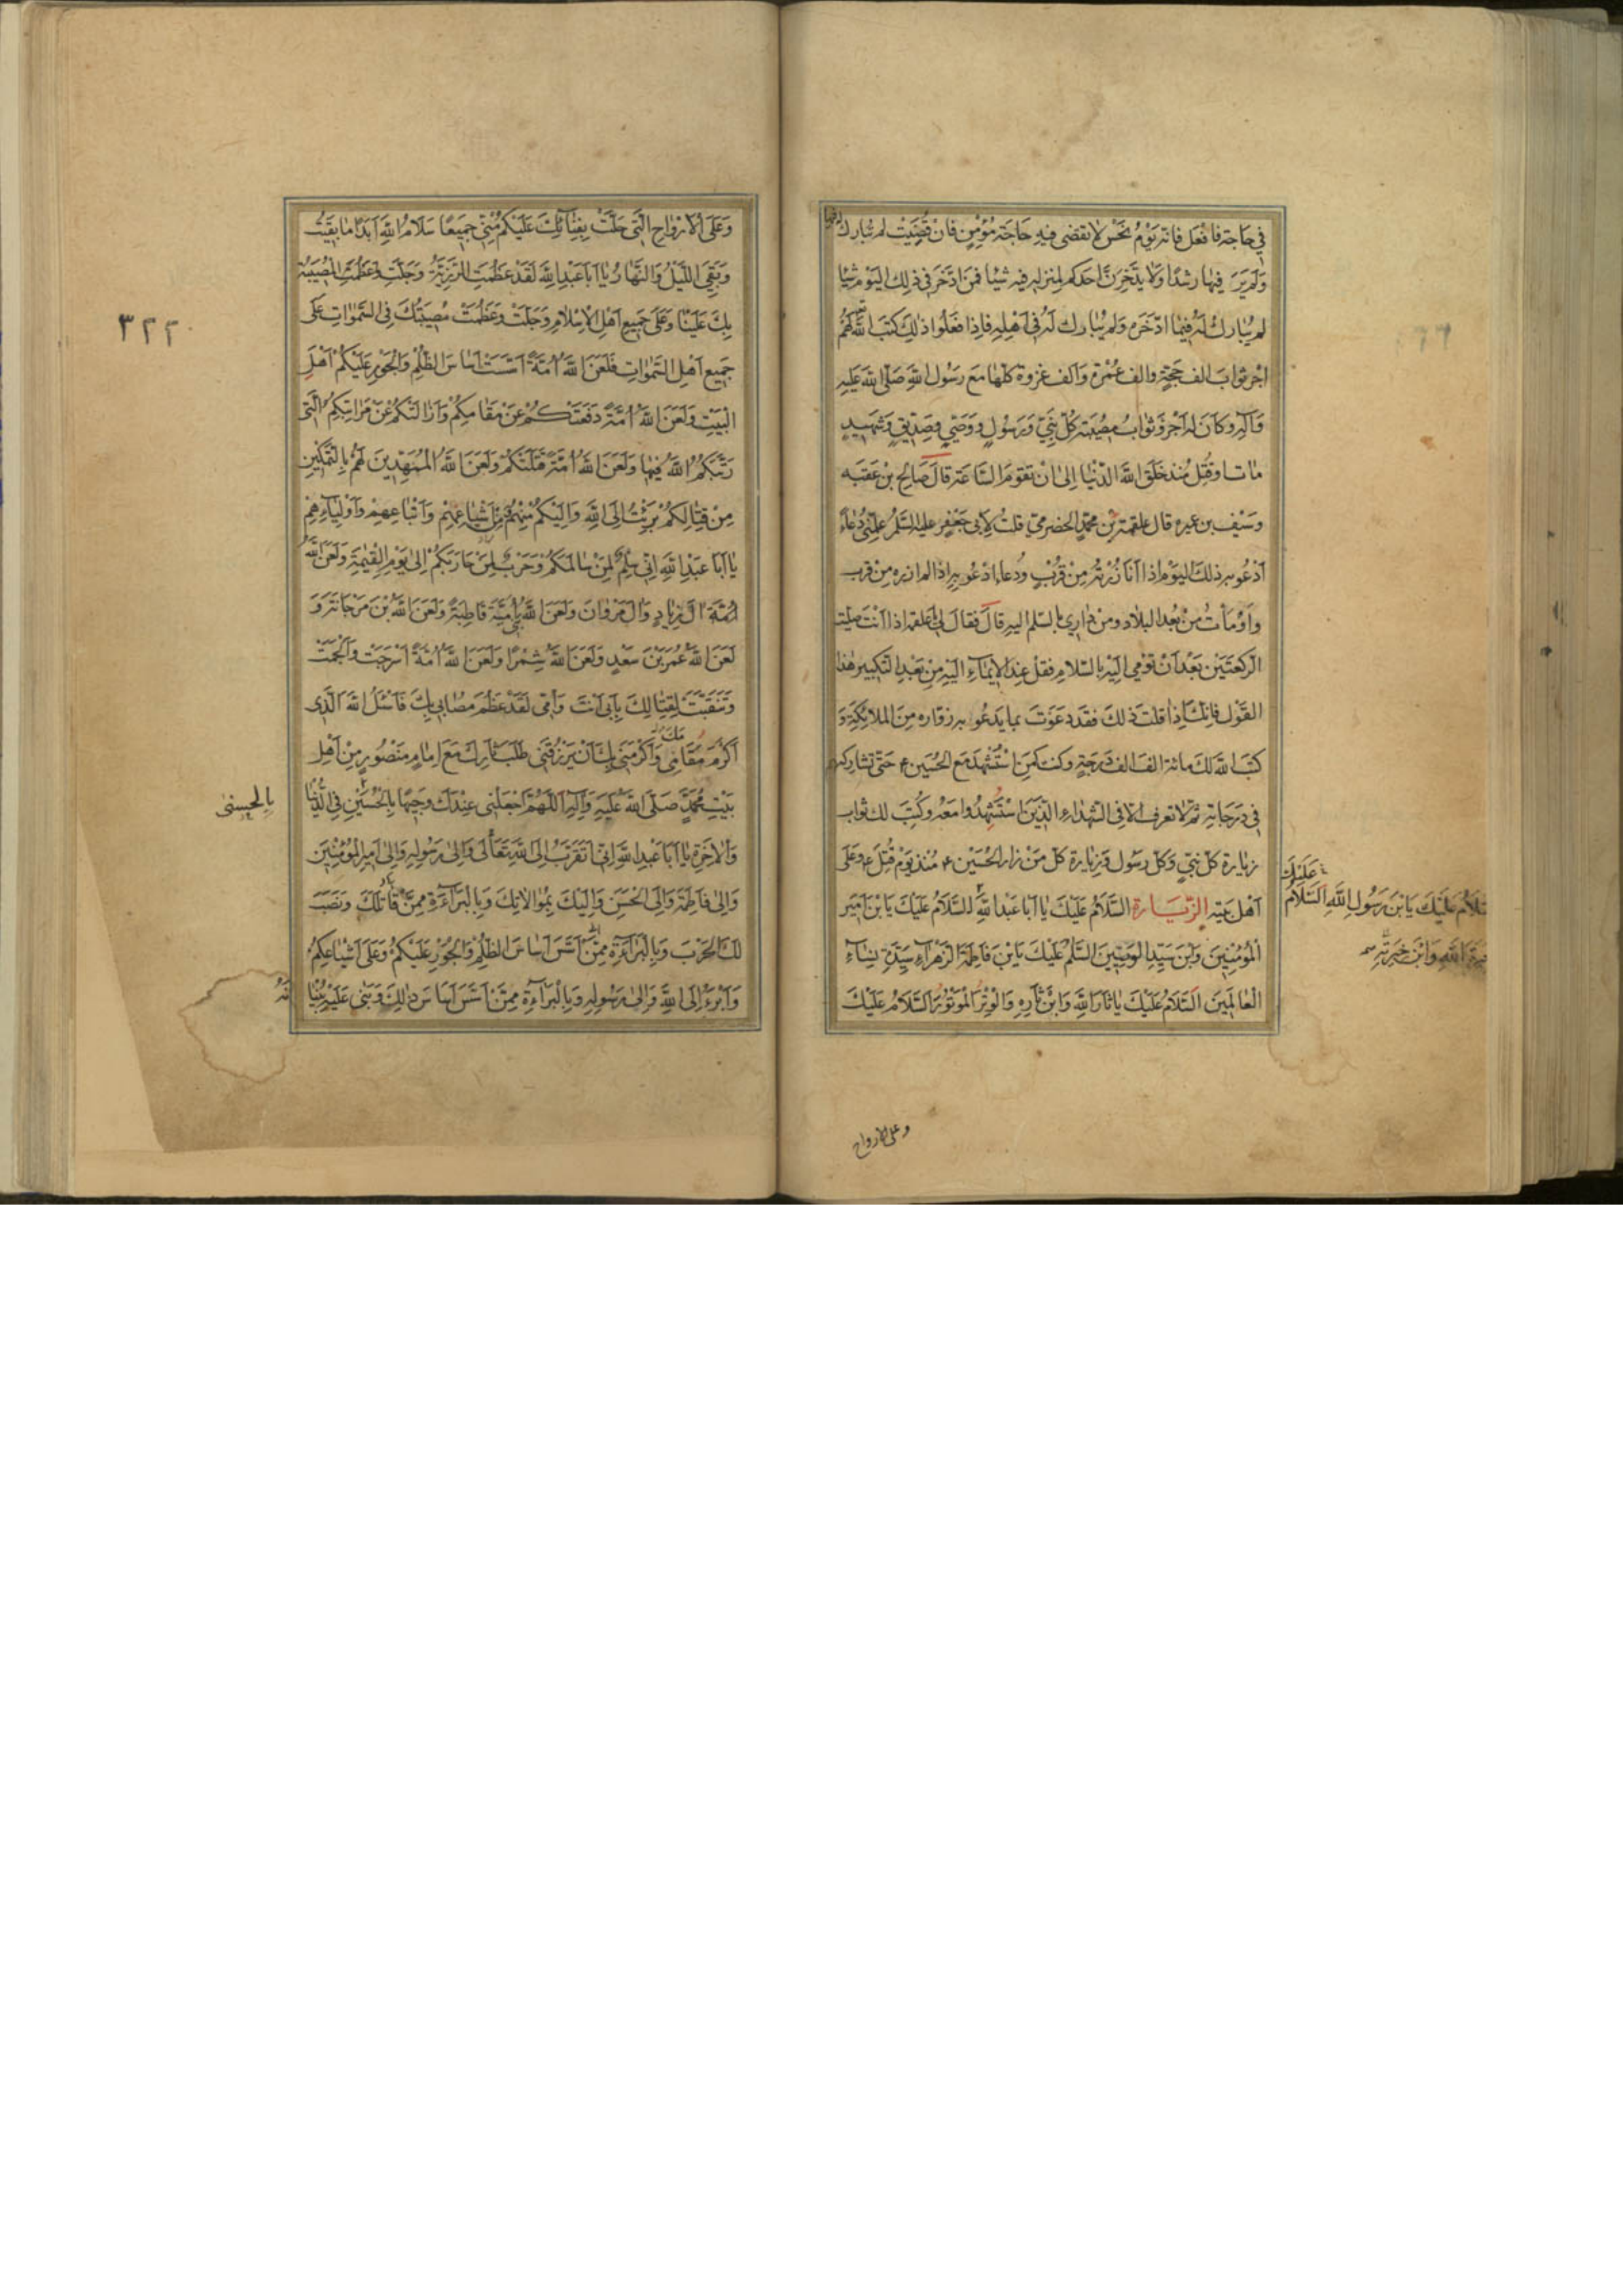 في حاجة فافعل فانه يوم نحس لا تقضى فيه حاجة مؤمن فان قضيت لم يبارك له فيها
ولم ير فيها رشدا ولا يدخرن احدكم لمنزله فيه شيئا فمن ادخر في ذلك اليوم شيئا
لم يبارك له فيما ادخره ولم يبارك له في اهله فاذا فعلوا ذلك كتب الله لهم
اجر ثواب الف حجة والف عمرة والف غزوة كلها مع رسول الله صلى الله عليه
وآله وكان له اجر وثواب مصيبة كل نبي ورسول ووصي وصديق وشهيد
مات او قتل منذ خلق الله الدنيا الى ان تقوم الساعة قال صالح بن عقبه
وسيف بن عميره قال علقمة بن محمد الحضرمي قلت لابي جعفر عليه السلم علمني دعاء
ادعو به ذلك اليوم اذا انا زرته من قرب ودعاء ادعو به اذا لم ازره من قرب
واومأت من بعد البلاد ومن داري بالسلم اليه قال فقال لي يا علقمة اذا انت صليت
الركعتين بعد ان تومي اليه بالسلام فقل عند الايماء اليه من بعد التكبير هذا
القول فانك اذا قلت ذلك فقد دعوت بما يدعو به زواره من الملائكة و
كتب الله لك مائة الف الف درجة وكنت كمن استشهد مع الحسين ع حتى تشاركهم
في درجاتهم ثم لا تعرف الا في الشهداء الذين استشهدوا معه وكتب لك ثواب
زيارة كل نبي وكل رسول وزيارة كل من زار الحسين ع منذ يوم قتل ع وعلى
اهل بيته الزيارة السلام عليك يا ابا عبد الله السلام عليك يا بن امير
المؤمنين وابن سيد الوصيين السلم عليك يا بن فاطمة الزهراء سيدة نساء
العالمين السلام عليك يا ثار الله وابن ثاره والوتر الموتور السلام عليك
عليك
السلام عليك يا بن رسول الله السلام
خيرة الله وابن خيرته
وعلى الارواح
٣٢٢
وعلى الارواح التي حلت بفنائك عليكم مني جميعا سلام الله ابدا ما بقيت
وبقي الليل والنهار يا ابا عبد الله لقد عظمت الرزية وجلت وعظمت المصيبة
بك علينا وعلى جميع اهل الاسلام وجلت وعظمت مصيبتك في السموات على
جميع اهل السموات فلعن الله امة اسست اساس الظلم والجور عليكم اهل
البيت ولعن الله امة دفعتكم عن مقامكم وازالتكم عن مراتبكم التي
رتبكم الله فيها ولعن الله امة قتلتكم ولعن الله الممهدين لهم بالتمكين
من قتالكم برئت الى الله واليكم منهم ومن اشياعهم واتباعهم واوليائهم
يا ابا عبد الله اني سلم لمن سالمكم وحرب لمن حاربكم الى يوم القيمة ولعن الله
آل زياد وآل مروان ولعن الله بني امية قاطبة ولعن الله بن مرجانة و
لعن الله عمر بن سعد ولعن الله شمرا ولعن الله امة اسرجت والجمت
وتنقبت لقتالك بابي انت وامي لقد عظم مصابي بك فاسئل الله الذي
اكرم مقامك واكرمني بك ان يرزقني طلب ثارك مع امام منصور من اهل
بيت محمد صلى الله عليه وآله اللهم اجعلني عندك وجيها بالحسين في الدنيا
والاخرة يا ابا عبد الله اني اتقرب الى الله تعالى والى رسوله والى امير المؤمنين
والى فاطمة والى الحسن واليك بموالاتك وبالبراءة ممن قاتلك ونصب
لك الحرب وبالبراءة ممن اسس اساس الظلم والجور عليكم وعلى اشياعكم
وابرء الى الله والى رسوله وبالبراءة ممن اسس اساس ذلك وبنى عليه بنيا
نه